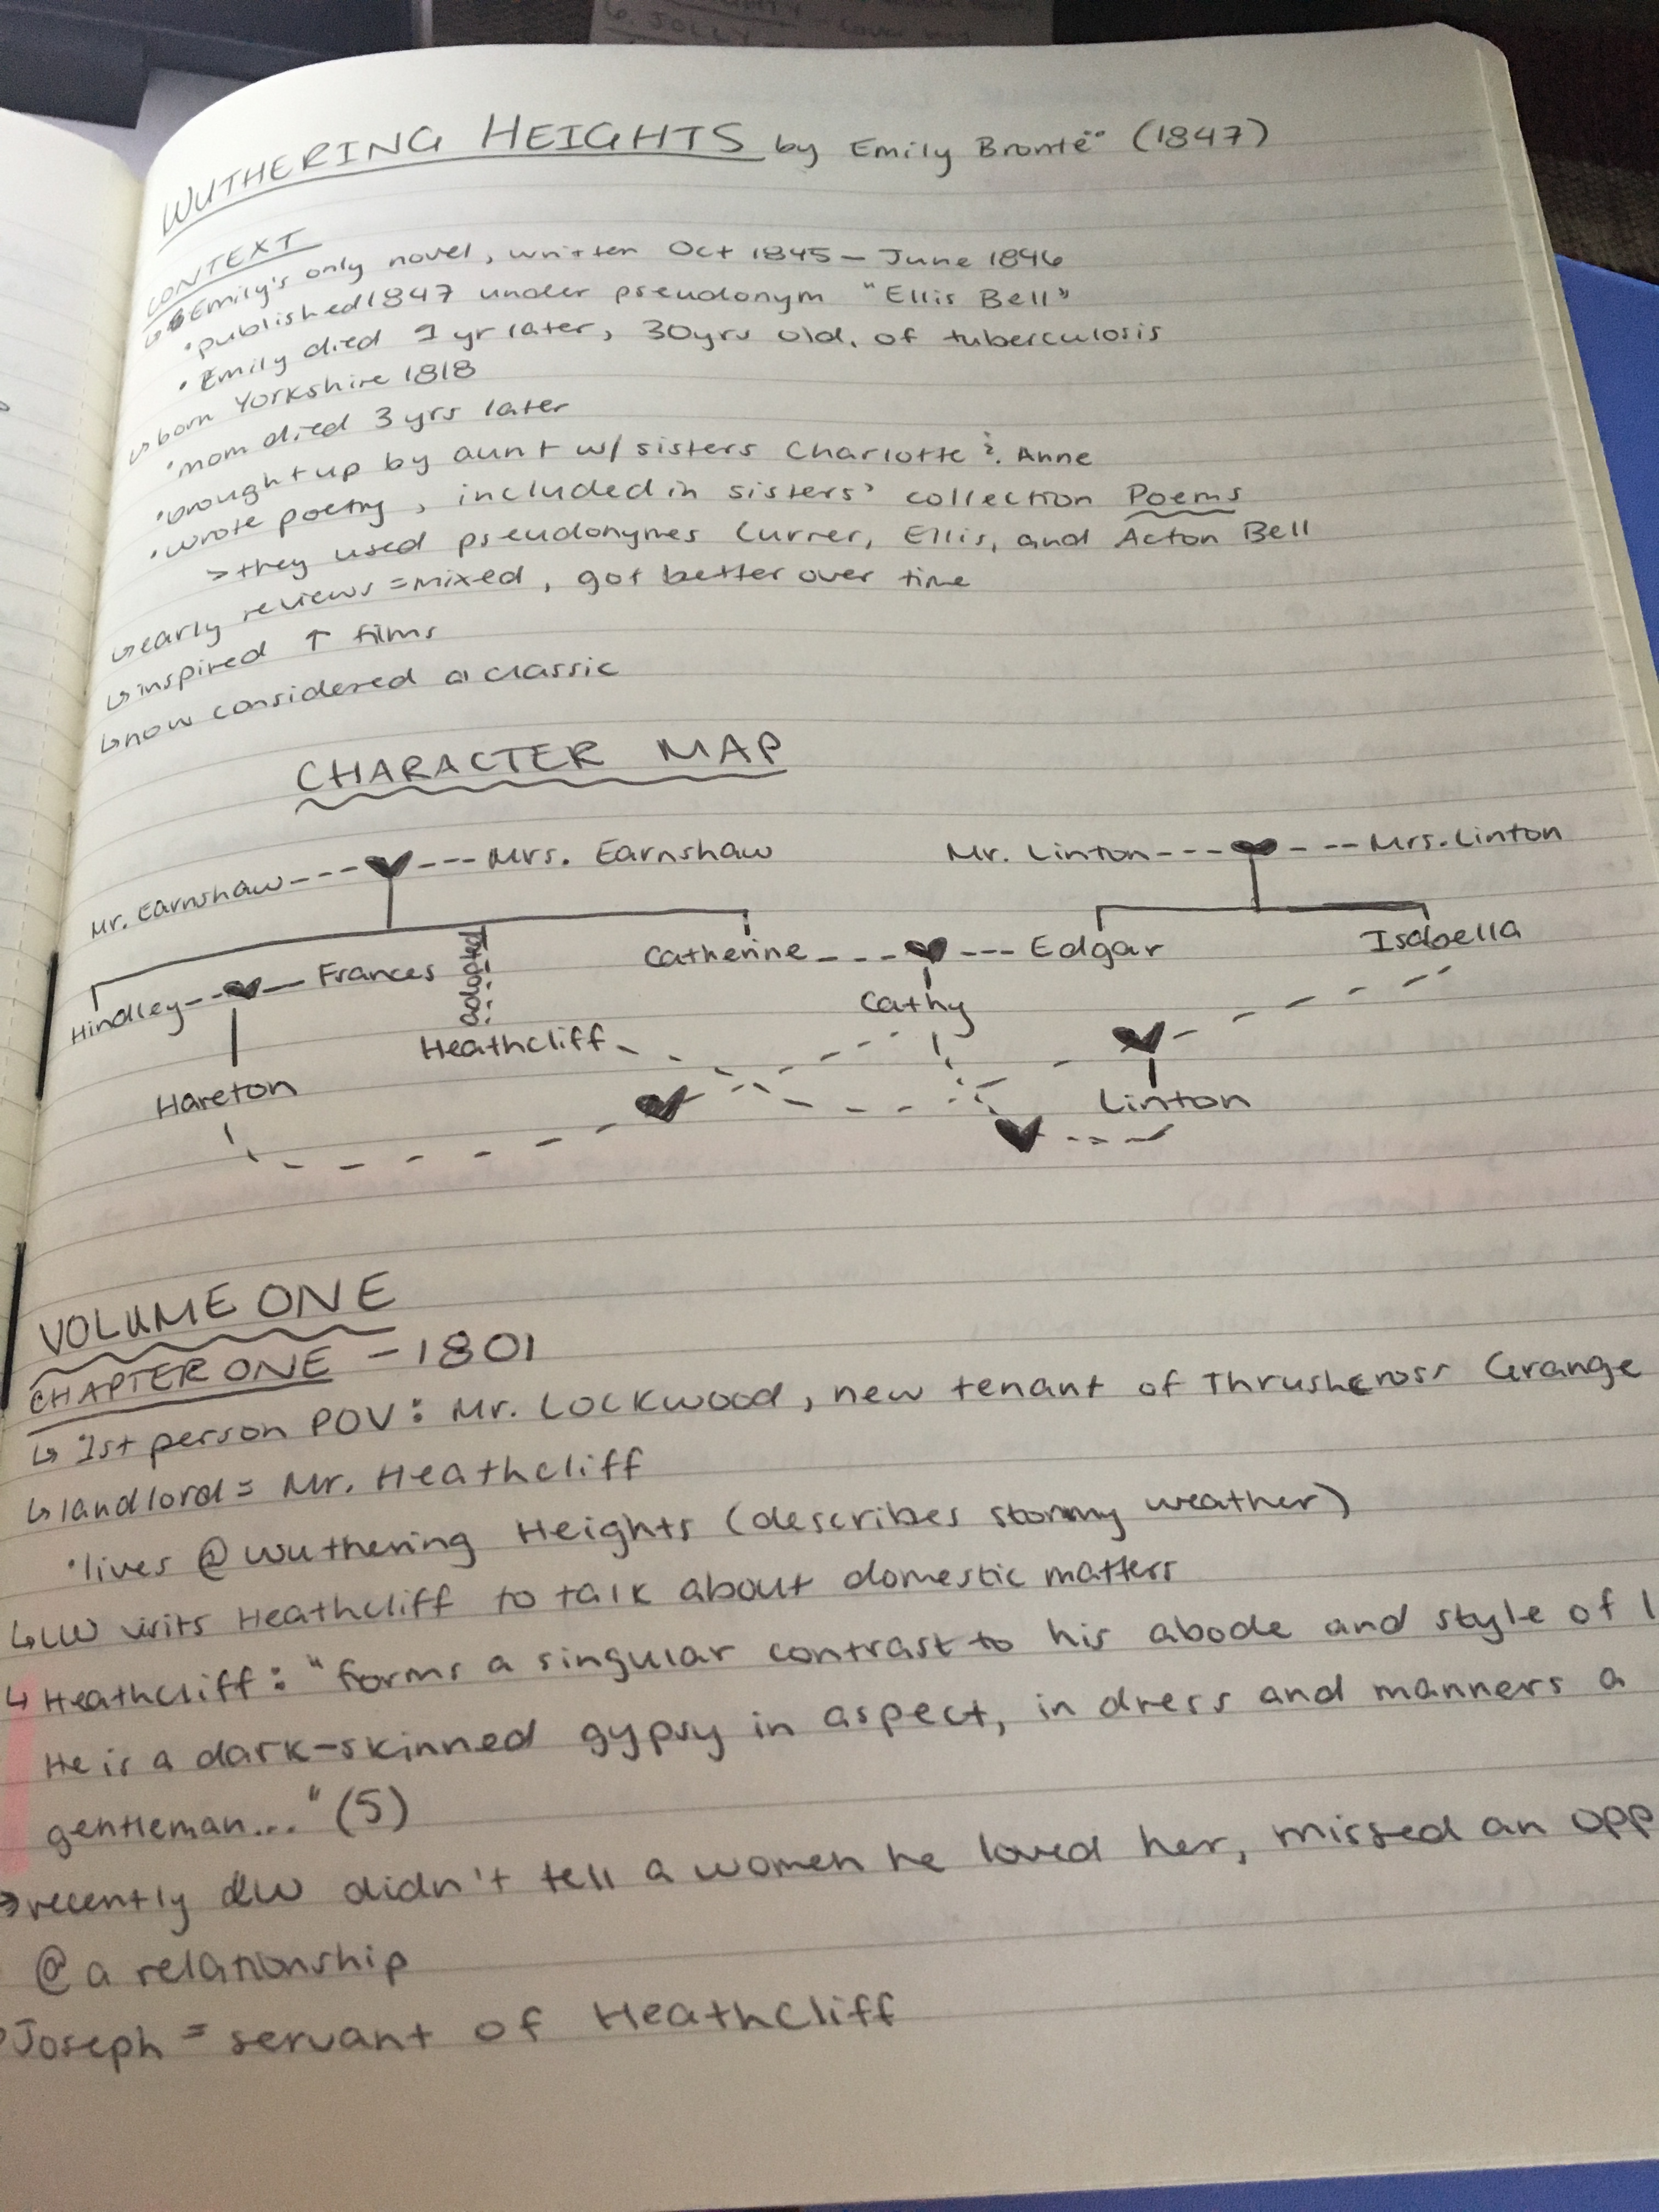 6. JOLLY
WUTHERING HEIGHTS by Emily Brontë (1847)
CONTEXT
↳ Emily's only novel, written Oct 1845 – June 1846
• published 1847 under pseudonym "Ellis Bell"
• Emily died 1 yr later, 30yrs old, of tuberculosis
↳ born Yorkshire 1818
• mom died 3 yrs later
• brought up by aunt w/ sisters Charlotte & Anne
• wrote poetry, included in sisters' collection Poems
> they used pseudonymes Currer, Ellis, and Acton Bell
↳ early reviews = mixed, got better over time
↳ inspired ↑ films
↳ now considered a classic
CHARACTER MAP
Mr. Earnshaw --- ♥ --- Mrs. Earnshaw Mr. Linton --- ♥ --- Mrs. Linton
Hindley -- ♥ -- Frances adopted Catherine --- ♥ --- Edgar Isabella
Heathcliff Cathy
Hareton ♥ ♥ Linton
♥
VOLUME ONE
CHAPTER ONE – 1801
↳ 1st person POV: Mr. Lockwood, new tenant of Thrushcross Grange
↳ landlord = Mr. Heathcliff
• lives @ Wuthering Heights (describes stormy weather)
↳ LW visits Heathcliff to talk about domestic matters
↳ Heathcliff: "forms a singular contrast to his abode and style of l
He is a dark-skinned gypsy in aspect, in dress and manners a
gentleman..." (5)
→ recently LW didn't tell a women he loved her, missed an opp
@ a relationship
Joseph = servant of Heathcliff